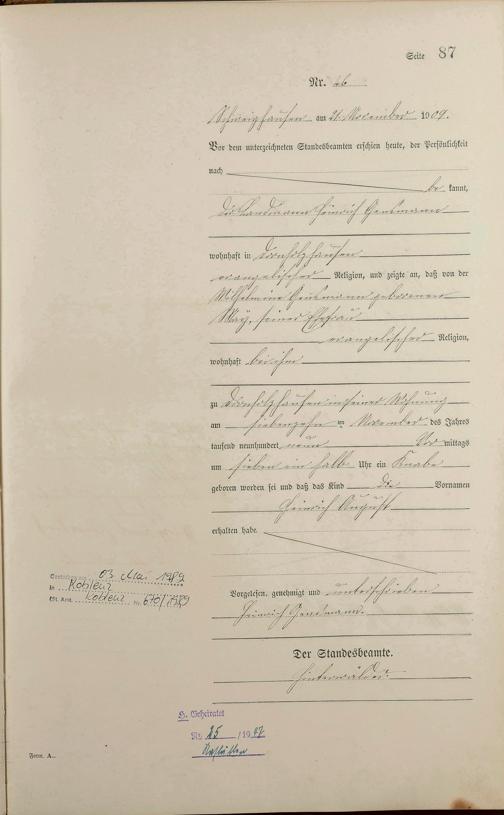 Seite 87
Nr. 26
Schweighausen am 21. November 1909.
Vor dem unterzeichneten Standesbeamten erschien heute, der Persönlichkeit
nach
be kannt,
der Landmann Heinrich
wohnhaft in Dornholzhausen
evangelischer Religion, und zeigte an, daß von der
Wilhelmine geborenen
May, seiner Ehefrau
evangelischer Religion,
wohnhaft bei ihm
zu Dornholzhausen in seiner Wohnung
am siebenzehn ten November des Jahres
tausend neunhundert neun Vor mittags
um sieben ein halb Uhr ein Knabe
geboren worden sei und daß das Kind die Vornamen
Heinrich August
erhalten habe.
Vorgelesen, genehmigt und unterschrieben
Heinrich
Der Standesbeamte.
Hinterwälder
03. Mai 1989
in Koblenz
St. Amt. Koblenz Nr. 670/1989
H. Geheiratet
Nr. 25 /1937
Form. A.